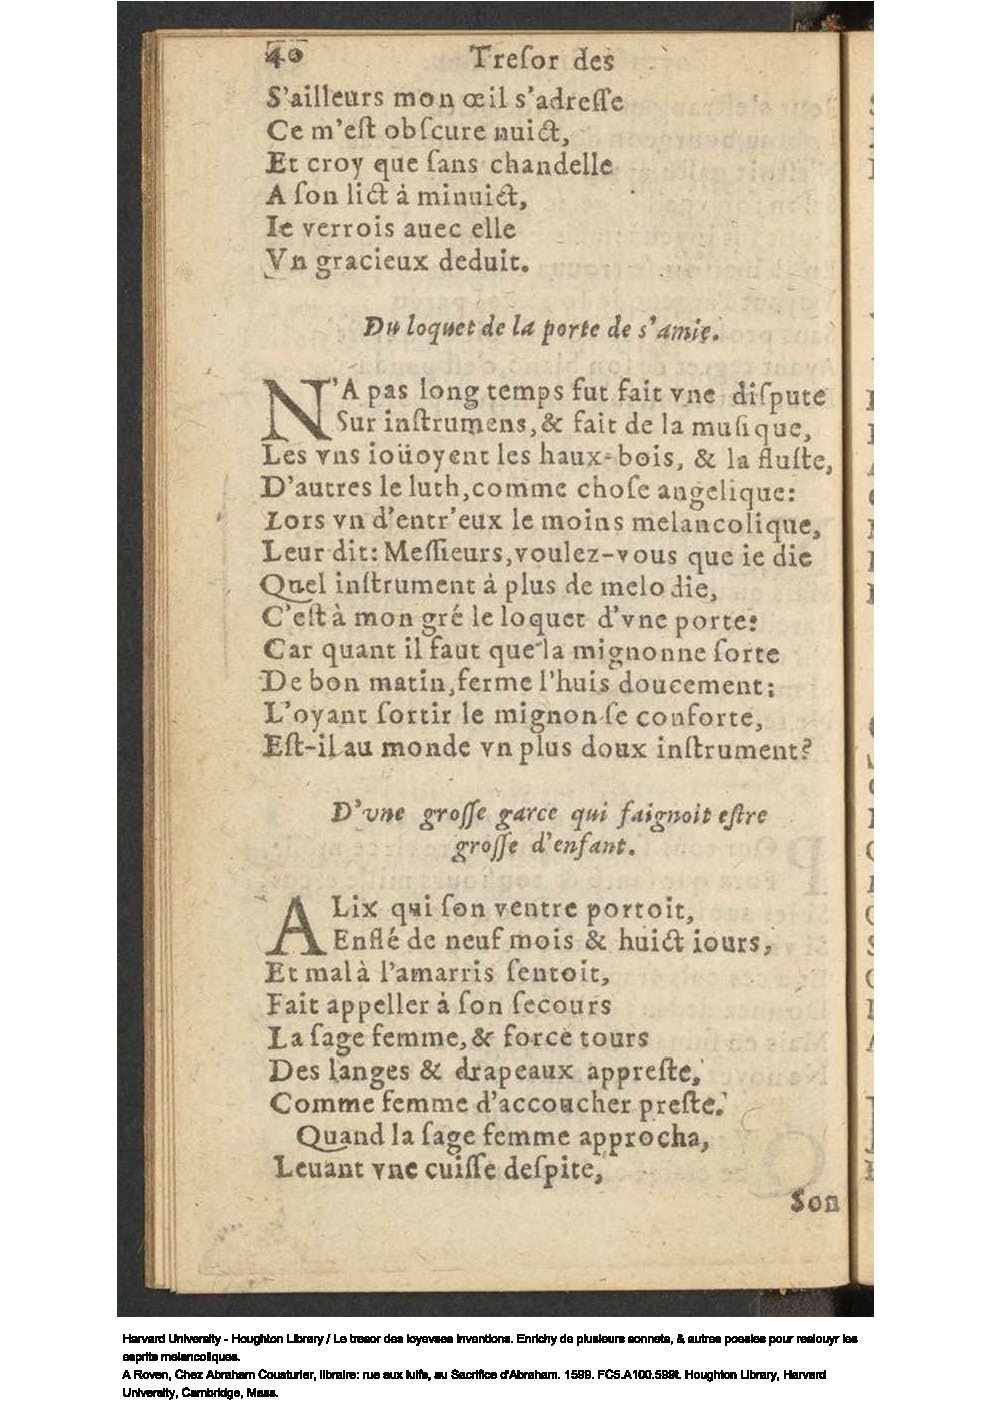 40 Treſor des
S'ailleurs mon œil s'adreſſe
Ce m'eſt obſcure nuict,
Et croy que ſans chandelle
A ſon lict à minuict,
Ie verrois auec elle
Vn gracieux deduit.
Du loquet de la porte de s'amie.
N'A pas long temps fut fait vne diſpute
Sur inſtrumens, & fait de la muſique,
Les vns ioüoyent les haux-bois, & la fluſte,
D'autres le luth, comme choſe angelique:
Lors vn d'entr'eux le moins melancolique,
Leur dit: Meſſieurs, voulez-vous que ie die
Quel inſtrument à plus de melodie,
C'eſt à mon gré le loquet d'vne porte:
Car quant il faut que la mignonne ſorte
De bon matin, ferme l'huis doucement;
L'oyant ſortir le mignon ſe conforte,
Eſt-il au monde vn plus doux inſtrument?
D'vne groſſe garce qui faignoit eſtre
groſſe d'enfant.
ALix qui ſon ventre portoit,
Enflé de neuf mois & huict iours,
Et mal à l'amarris ſentoit,
Fait appeller à ſon ſecours
La ſage femme, & force tours
Des langes & drapeaux appreſte,
Comme femme d'accoucher preſte.
Quand la ſage femme approcha,
Leuant vne cuiſſe deſpite,
Son
Harvard University - Houghton Library / Le tresor des ioyevses inventions. Enrichy de plusieurs sonnets, & autres poesies pour resiouyr les
esprits melancoliques.
A Roven, Chez Abraham Cousturier, libraire: rue aux Iuifs, au Sacrifice d'Abraham. 1599. FC5.A100.599t. Houghton Library, Harvard
University, Cambridge, Mass.